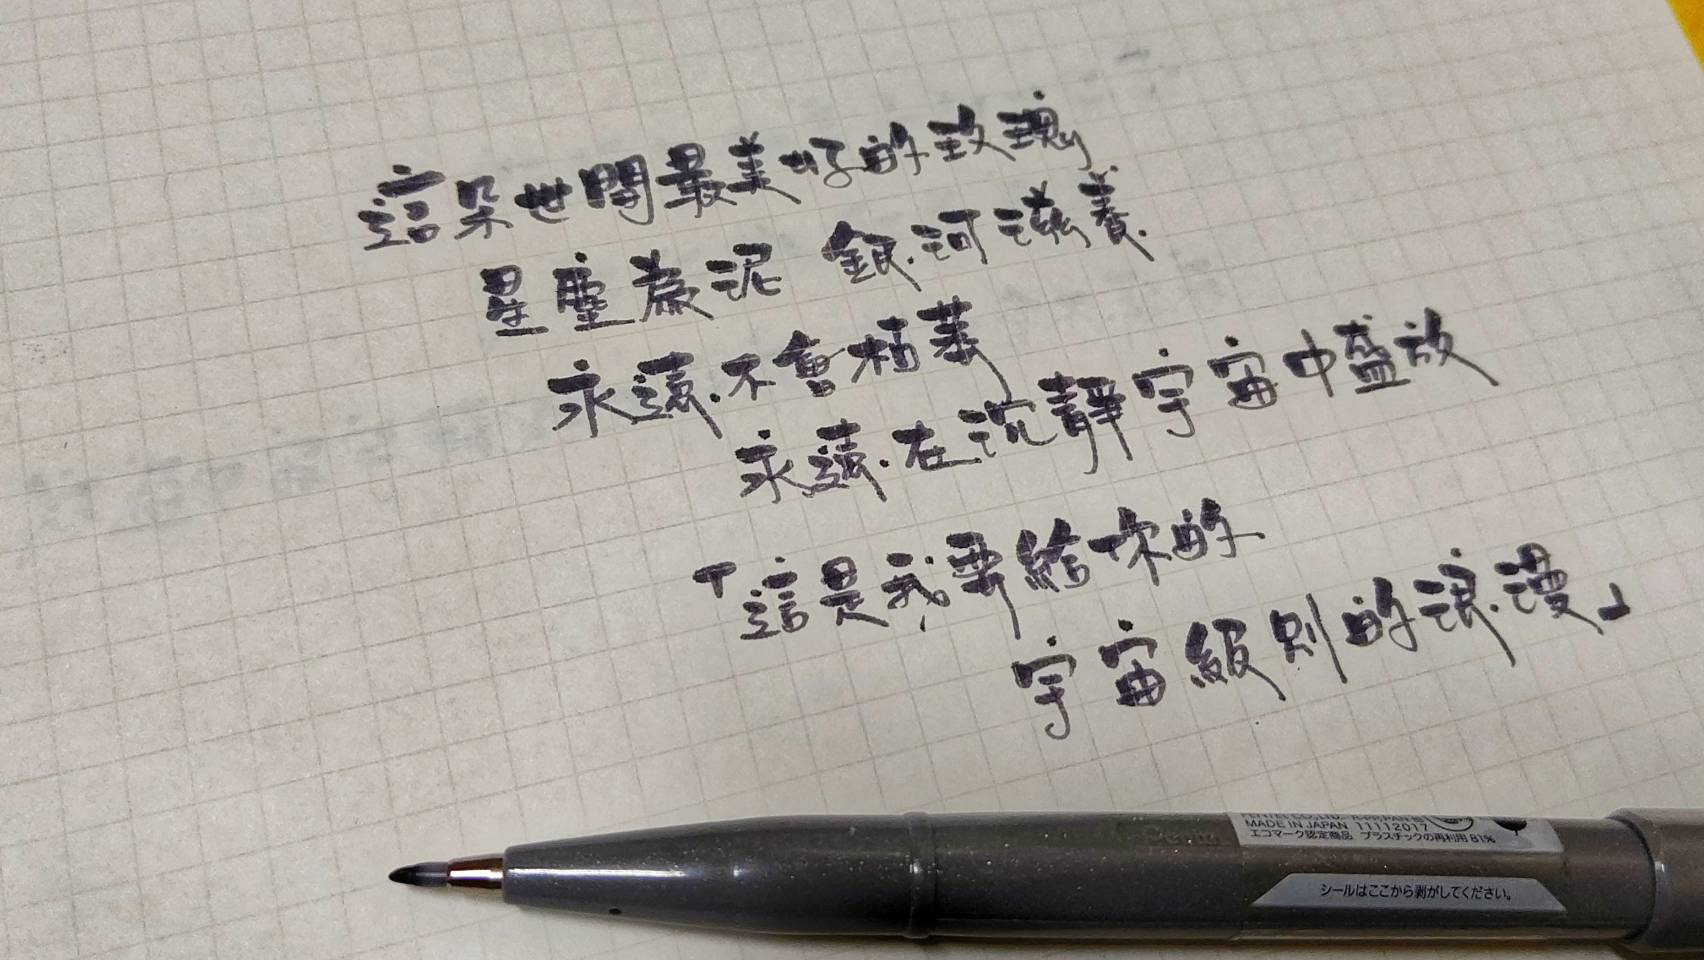 這朵世間最美好的玫瑰
星塵為泥 銀河滋養
永遠不會枯萎
永遠在沉靜宇宙中盛放
「這是我要給妳的
宇宙級別的浪漫」
MADE IN JAPAN 11112017
エコマーク認定商品 プラスチックの再利用81%
シールはここから剥がしてください。